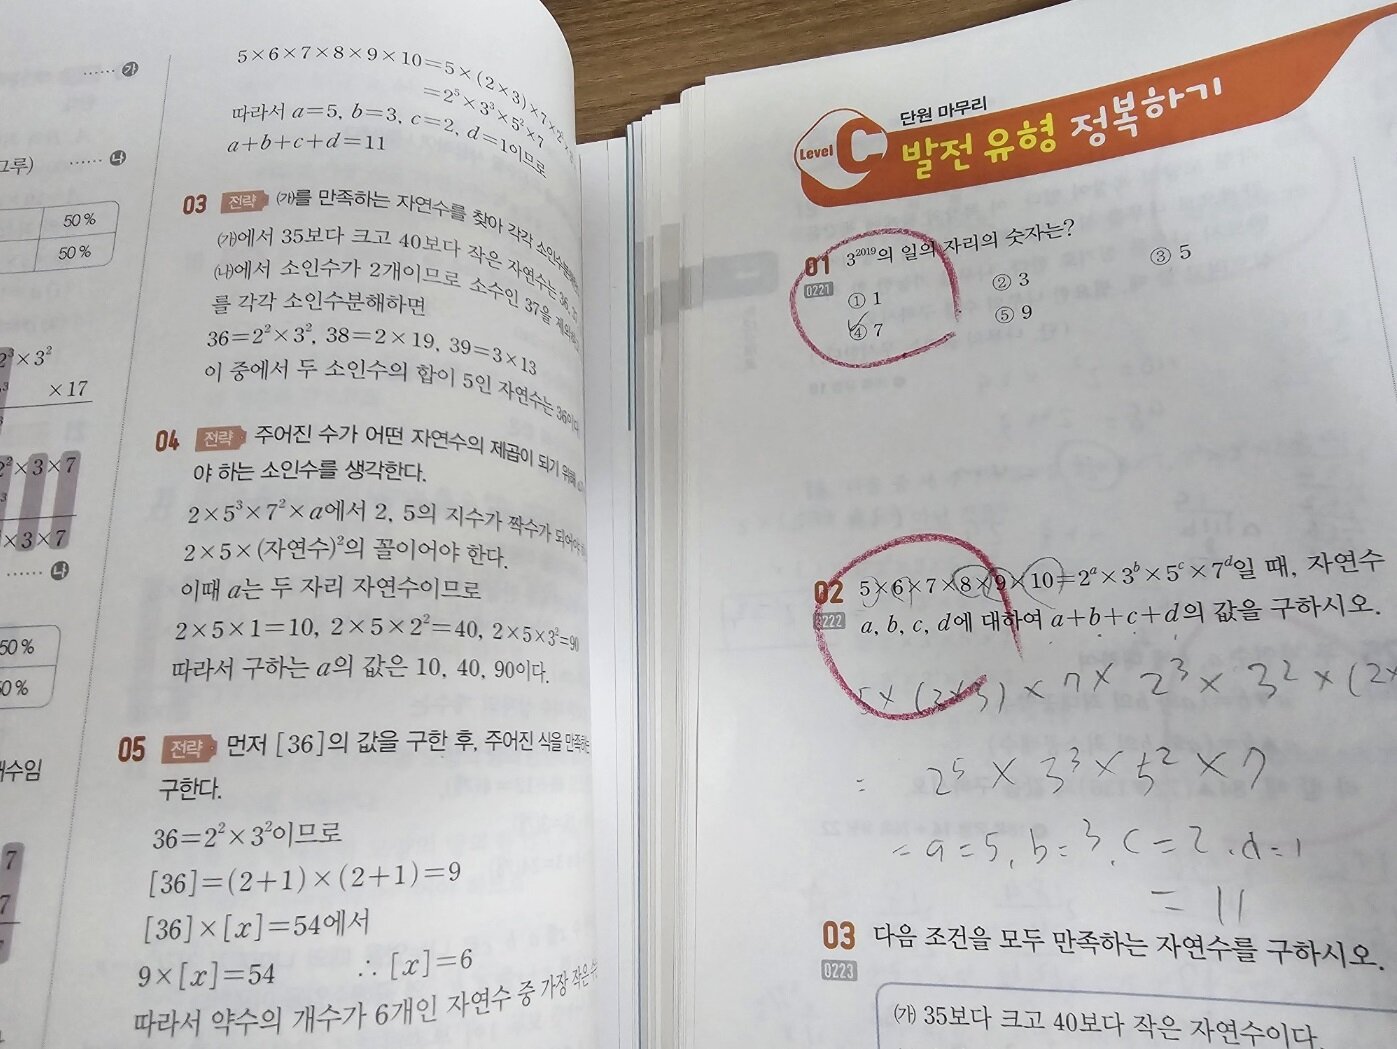 …… ㉮
그루)
…… ㉯
50 %
50 %
2³×3²
×17
2²×3×7
×3×7
…… ㉯
50 %
50 %
개수임
7
7
7
5×6×7×8×9×10=5×(2×3)×7×2
=2⁵×3³×5²×7
따라서 a=5, b=3, c=2, d=1이므로
a+b+c+d=11
03 전략 ㈎를 만족하는 자연수를 찾아 각각
㈎에서 35보다 크고 40보다 작은 자연수는 36,
㈏에서 소인수가 2개이므로 소수인 37을
를 각각 소인수분해하면
36=2²×3², 38=2×19, 39=3×13
이 중에서 두 소인수의 합이 5인 자연수는 36이다.
04 전략 주어진 수가 어떤 자연수의 제곱이 되기 위해
야 하는 소인수를 생각한다.
2×5³×7²×a에서 2, 5의 지수가 짝수가 되어야
2×5×(자연수)²의 꼴이어야 한다.
이때 a는 두 자리 자연수이므로
2×5×1=10, 2×5×2²=40, 2×5×3²=90
따라서 구하는 a의 값은 10, 40, 90이다.
05 전략 먼저 [36]의 값을 구한 후, 주어진 식을 만족하는
구한다.
36=2²×3²이므로
[36]=(2+1)×(2+1)=9
[36]×[x]=54에서
9×[x]=54 ∴ [x]=6
따라서 약수의 개수가 6개인 자연수 중 가장 작은
단원 마무리
Level C 발전 유형 정복하기
01 3²⁰¹⁹의 일의 자리의 숫자는?
0221
① 1 ② 3 ③ 5
④ 7 ⑤ 9
02 5×6×7×8×9×10=2ᵃ×3ᵇ×5ᶜ×7ᵈ일 때, 자연수
0222 a, b, c, d에 대하여 a+b+c+d의 값을 구하시오.
5×(2×3)×7×2³×3²×(2×
= 2⁵×3³×5²×7
= a=5, b=3, c=2, d=1
= 11
03 다음 조건을 모두 만족하는 자연수를 구하시오.
0223
㈎ 35보다 크고 40보다 작은 자연수이다.